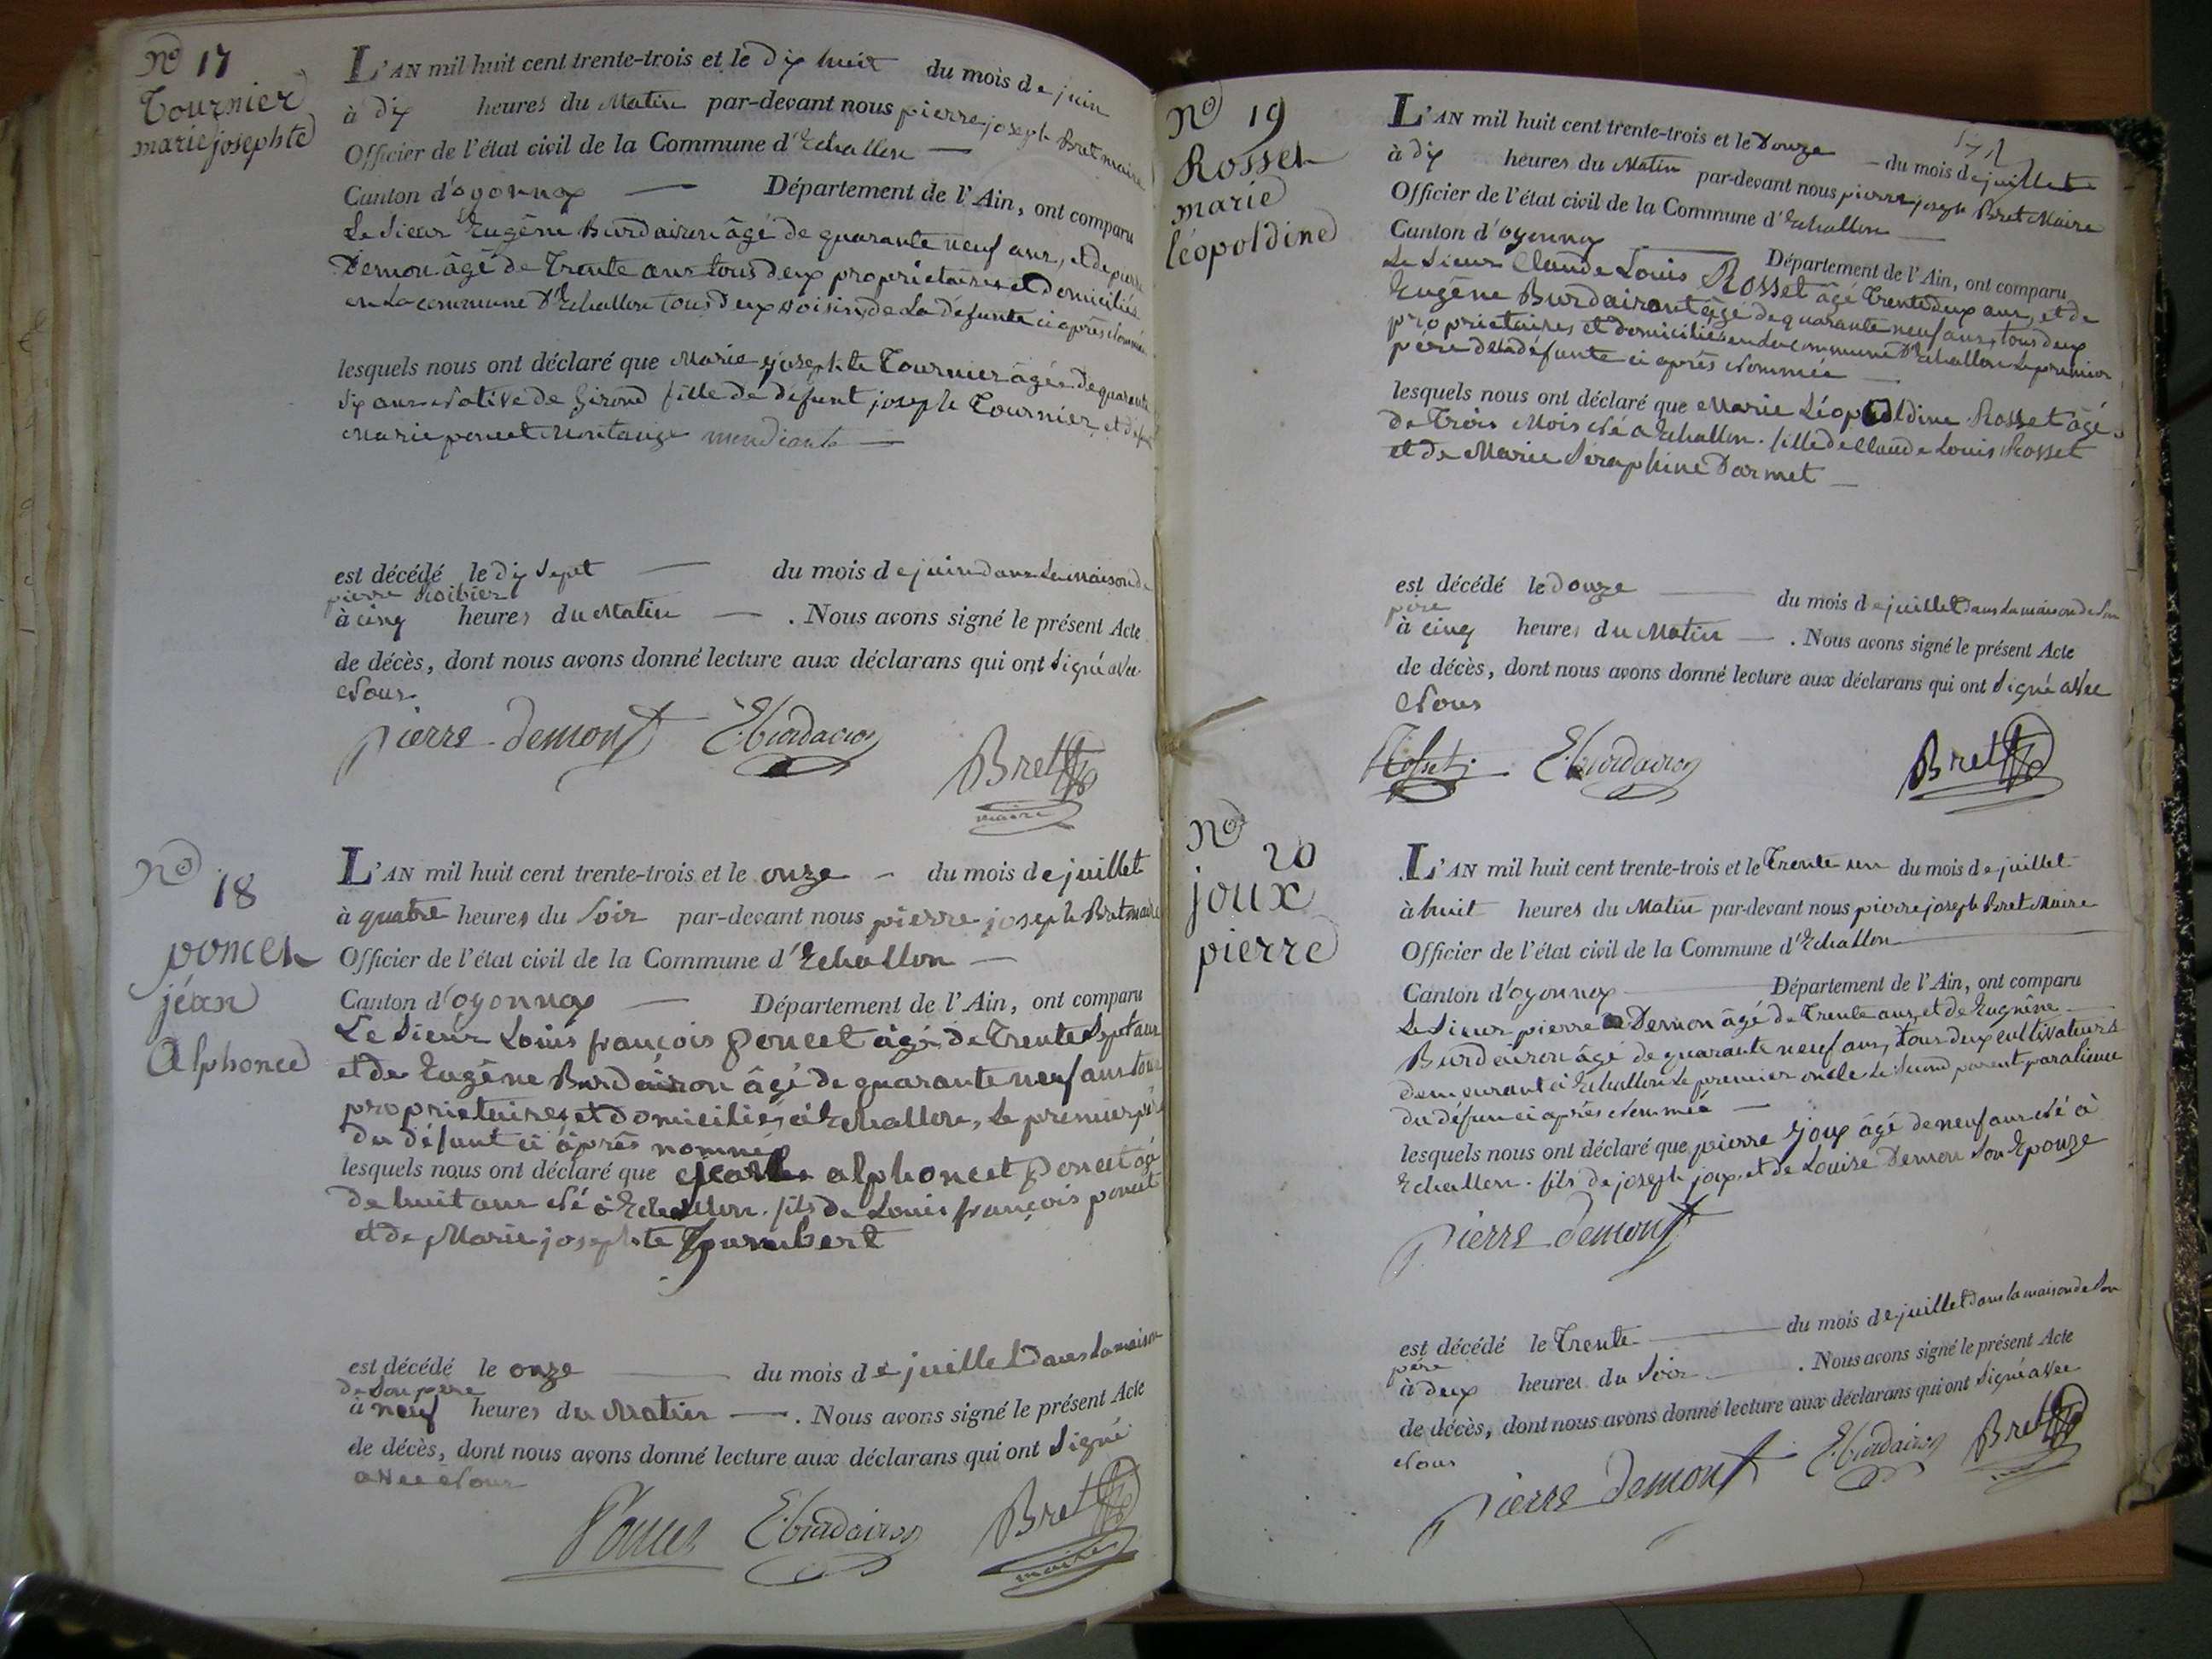 No 17
Tournier
marie josephte
L'AN mil huit cent trente-trois et le dix huit du mois de juin
à dix heures du Matin par-devant nous pierre joseph Bret maire
Officier de l'état civil de la Commune d'Echallon —
Canton d'oyonnax — Département de l'Ain, ont comparu
Le Sieur Eugêne Burdairon âgé de quarante neuf ans, et de pierre
Demon âgé de Trente ans tous deux proprietaires et Domiciliés
en La commune D'Echallon tous Deux voisins de La défunte ci après Nommée
lesquels nous ont déclaré que Marie josephte Tournier âgée de quarante
six ans Native de Girond fille de défunt joseph Tournier, et de
Marie poncet Montange mendiante —
est décédé le dix Sept — du mois de juin dans La Maison de
pierre Roibier
à cinq heures du Matin — . Nous avons signé le présent Acte
de décès, dont nous avons donné lecture aux déclarans qui ont Signé avec
Nous.
pierre demont E. burdairon Bret
maire
No 18
poncet
jéan
Alphonce
L'AN mil huit cent trente-trois et le onze — du mois de juillet
à quatre heures du Soir par-devant nous pierre joseph Bret maire
Officier de l'état civil de la Commune d'Echallon —
Canton d'oyonnax — Département de l'Ain, ont comparu
Le Sieur Louis françois poncet âgé de Trente Sept ans
et de Eugêne Burdairon âgé de quarante neuf ans tous
proprietaires et domiciliés à Echallon, Le premier père
du défunt ci après nommé
lesquels nous ont déclaré que alphoncet poncet âgé
de huit ans Né à Echallon. fils de Louis françois poncet
et de Marie josephte humbert
est décédé le onze — du mois de juillet Dans La maison
de Son père
à neuf heures du Matin — . Nous avons signé le présent Acte
de décès, dont nous avons donné lecture aux déclarans qui ont Signé
avec Nous
Poncet E. burdairon Bret
maire
No 19
Rosset
marie
léopoldine
L'AN mil huit cent trente-trois et le Douze — du mois de juillet
à dix heures du Matin par-devant nous pierre joseph Bret Maire
Officier de l'état civil de la Commune d'Echallon —
Canton d'oyonnax — Département de l'Ain, ont comparu
Le Sieur Claude Louis Rosset âgé Trente deux ans, et de
Eugêne Burdairont âgé de quarante neuf ans, tous deux
proprietaires et domiciliés en La commune D'Echallon Le premier
père de la défunte ci après Nommée —
lesquels nous ont déclaré que Marie Léopoldine Rosset âgé
de Trois Mois Né à Echallon. fille de Claude Louis Rosset
et de Marie Séraphine Darmet —
est décédé le Douze — du mois de juillet Dans La maison de Son
père
à cinq heures du Matin — . Nous avons signé le présent Acte
de décès, dont nous avons donné lecture aux déclarans qui ont Signé avec
Nous
Rosset E. burdairon Bret
No 20
joux
pierre
L'AN mil huit cent trente-trois et le Trente un du mois de juillet
à huit heures du Matin par-devant nous pierre joseph Bret Maire
Officier de l'état civil de la Commune d'Echallon —
Canton d'oyonnax — Département de l'Ain, ont comparu
Le Sieur pierre Demon âgé de Trente ans, et de Eugnêne
Burdairon âgé de quarante neuf ans, tous deux cultivateurs
demeurant à Echallon Le premier oncle Le Second parent par alience
du défun ci après Nommée —
lesquels nous ont déclaré que pierre joux âgé de neuf ans Né à
Echallon. fils de joseph joux, et de Louise Demon Son Epouze
pierre demont
est décédé le Trente — du mois de juillet Dans la maison de Son
père
à deux heures du Soir — . Nous avons signé le présent Acte
de décès, dont nous avons donné lecture aux déclarans qui ont Signé avec
Nous
pierre demont E. burdairon Bret